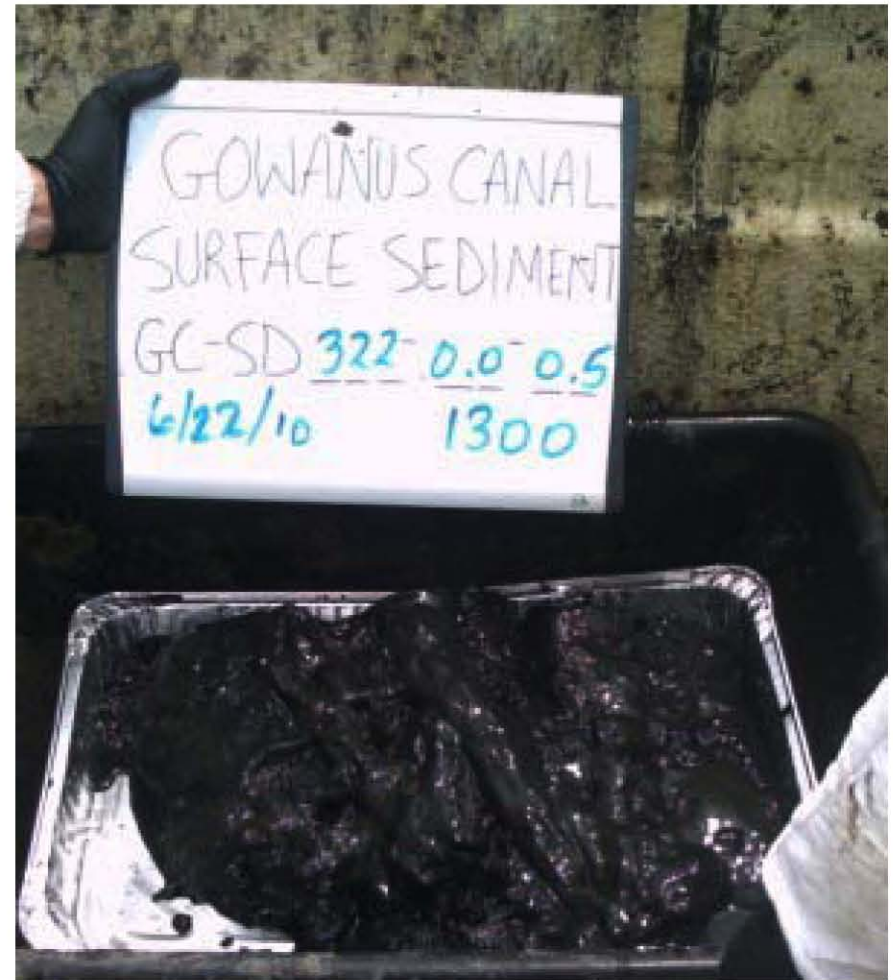 GOWANUS CANAL
SURFACE SEDIMENT
GC-SD 322-0.0-0.5
6/22/10 1300